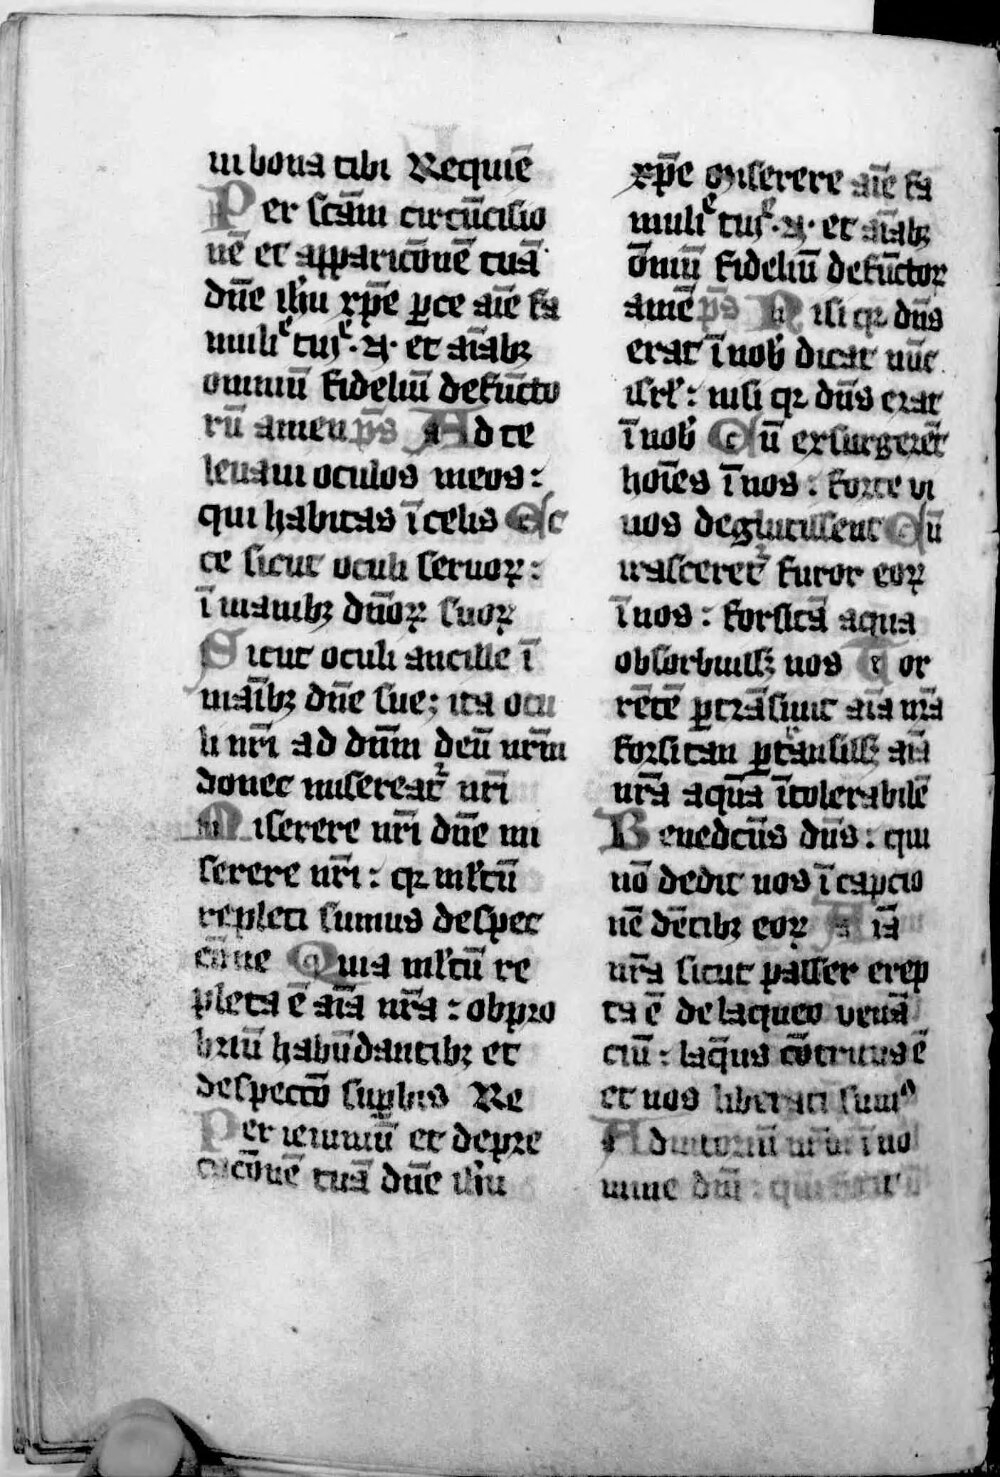 in bona tibi Requiē
Per scām circūcisio
nē et apparicōnē tuā
dn̄e ihū xp̄e ꝑce aīe fa
mulieͤ tuẏͤ·N· et aīabꝫ
omniū fideliū defūcto
rū amen p̄s Ad te
leuaui oculos meos:
qui habitas ī celis Ec
ce sicut oculi seruoꝝ:
ī manibꝫ dn̄oꝝ suoꝝ
Sicut oculi ancille ī
maībꝫ dn̄e sue; ita ocu
li nr̄i ad dn̄m deū nrm̄
donec misereat᷑ nr̄i
Miserere nr̄i dn̄e mi
serere nr̄i: qꝛ ml̄tū
repleti sumus despec
cōne Quia ml̄tū re
pleta ē aīa nr̄a: obpro
briū habūdantibꝫ et
despectō suꝑbis Re
Per ieiuniū et depre
cacōnē tuā dn̄e ihū
xp̄e miserere aīe fa
mulieͤ tuẏͤ·N· et aīabꝫ
ōniū fideliū defūctor
amē p̄s Nisi qꝛ dn̄s
erat ī nob̄ dicat nūc
isrl̄: nisi qꝛ dn̄s erat
ī nob̄ Cū exsurgerēt
hoīes ī nos: forte vi
uos deglutissent Cū
irasceret᷑ furor eoꝝ
ī nos: forsitā aqua
obsorbuissꝫ nos Tor
rētē ꝑtrāsiuit aīa nr̄a
forsitan ꝑtransissꝫ aīa
nr̄a aquā ītolerabilē
Benedcūs dn̄s: qui
nō dedit nos ī capcio
nē dētibꝫ eoꝝ Aīa
nr̄a sicut passer erep
ta ē de laqueo venā
ciū: laq̄us cōtritus ē
et nos liberati sumꝰ
Adiutoriū nrm̄ ī no
mine dn̄i: qui fecit